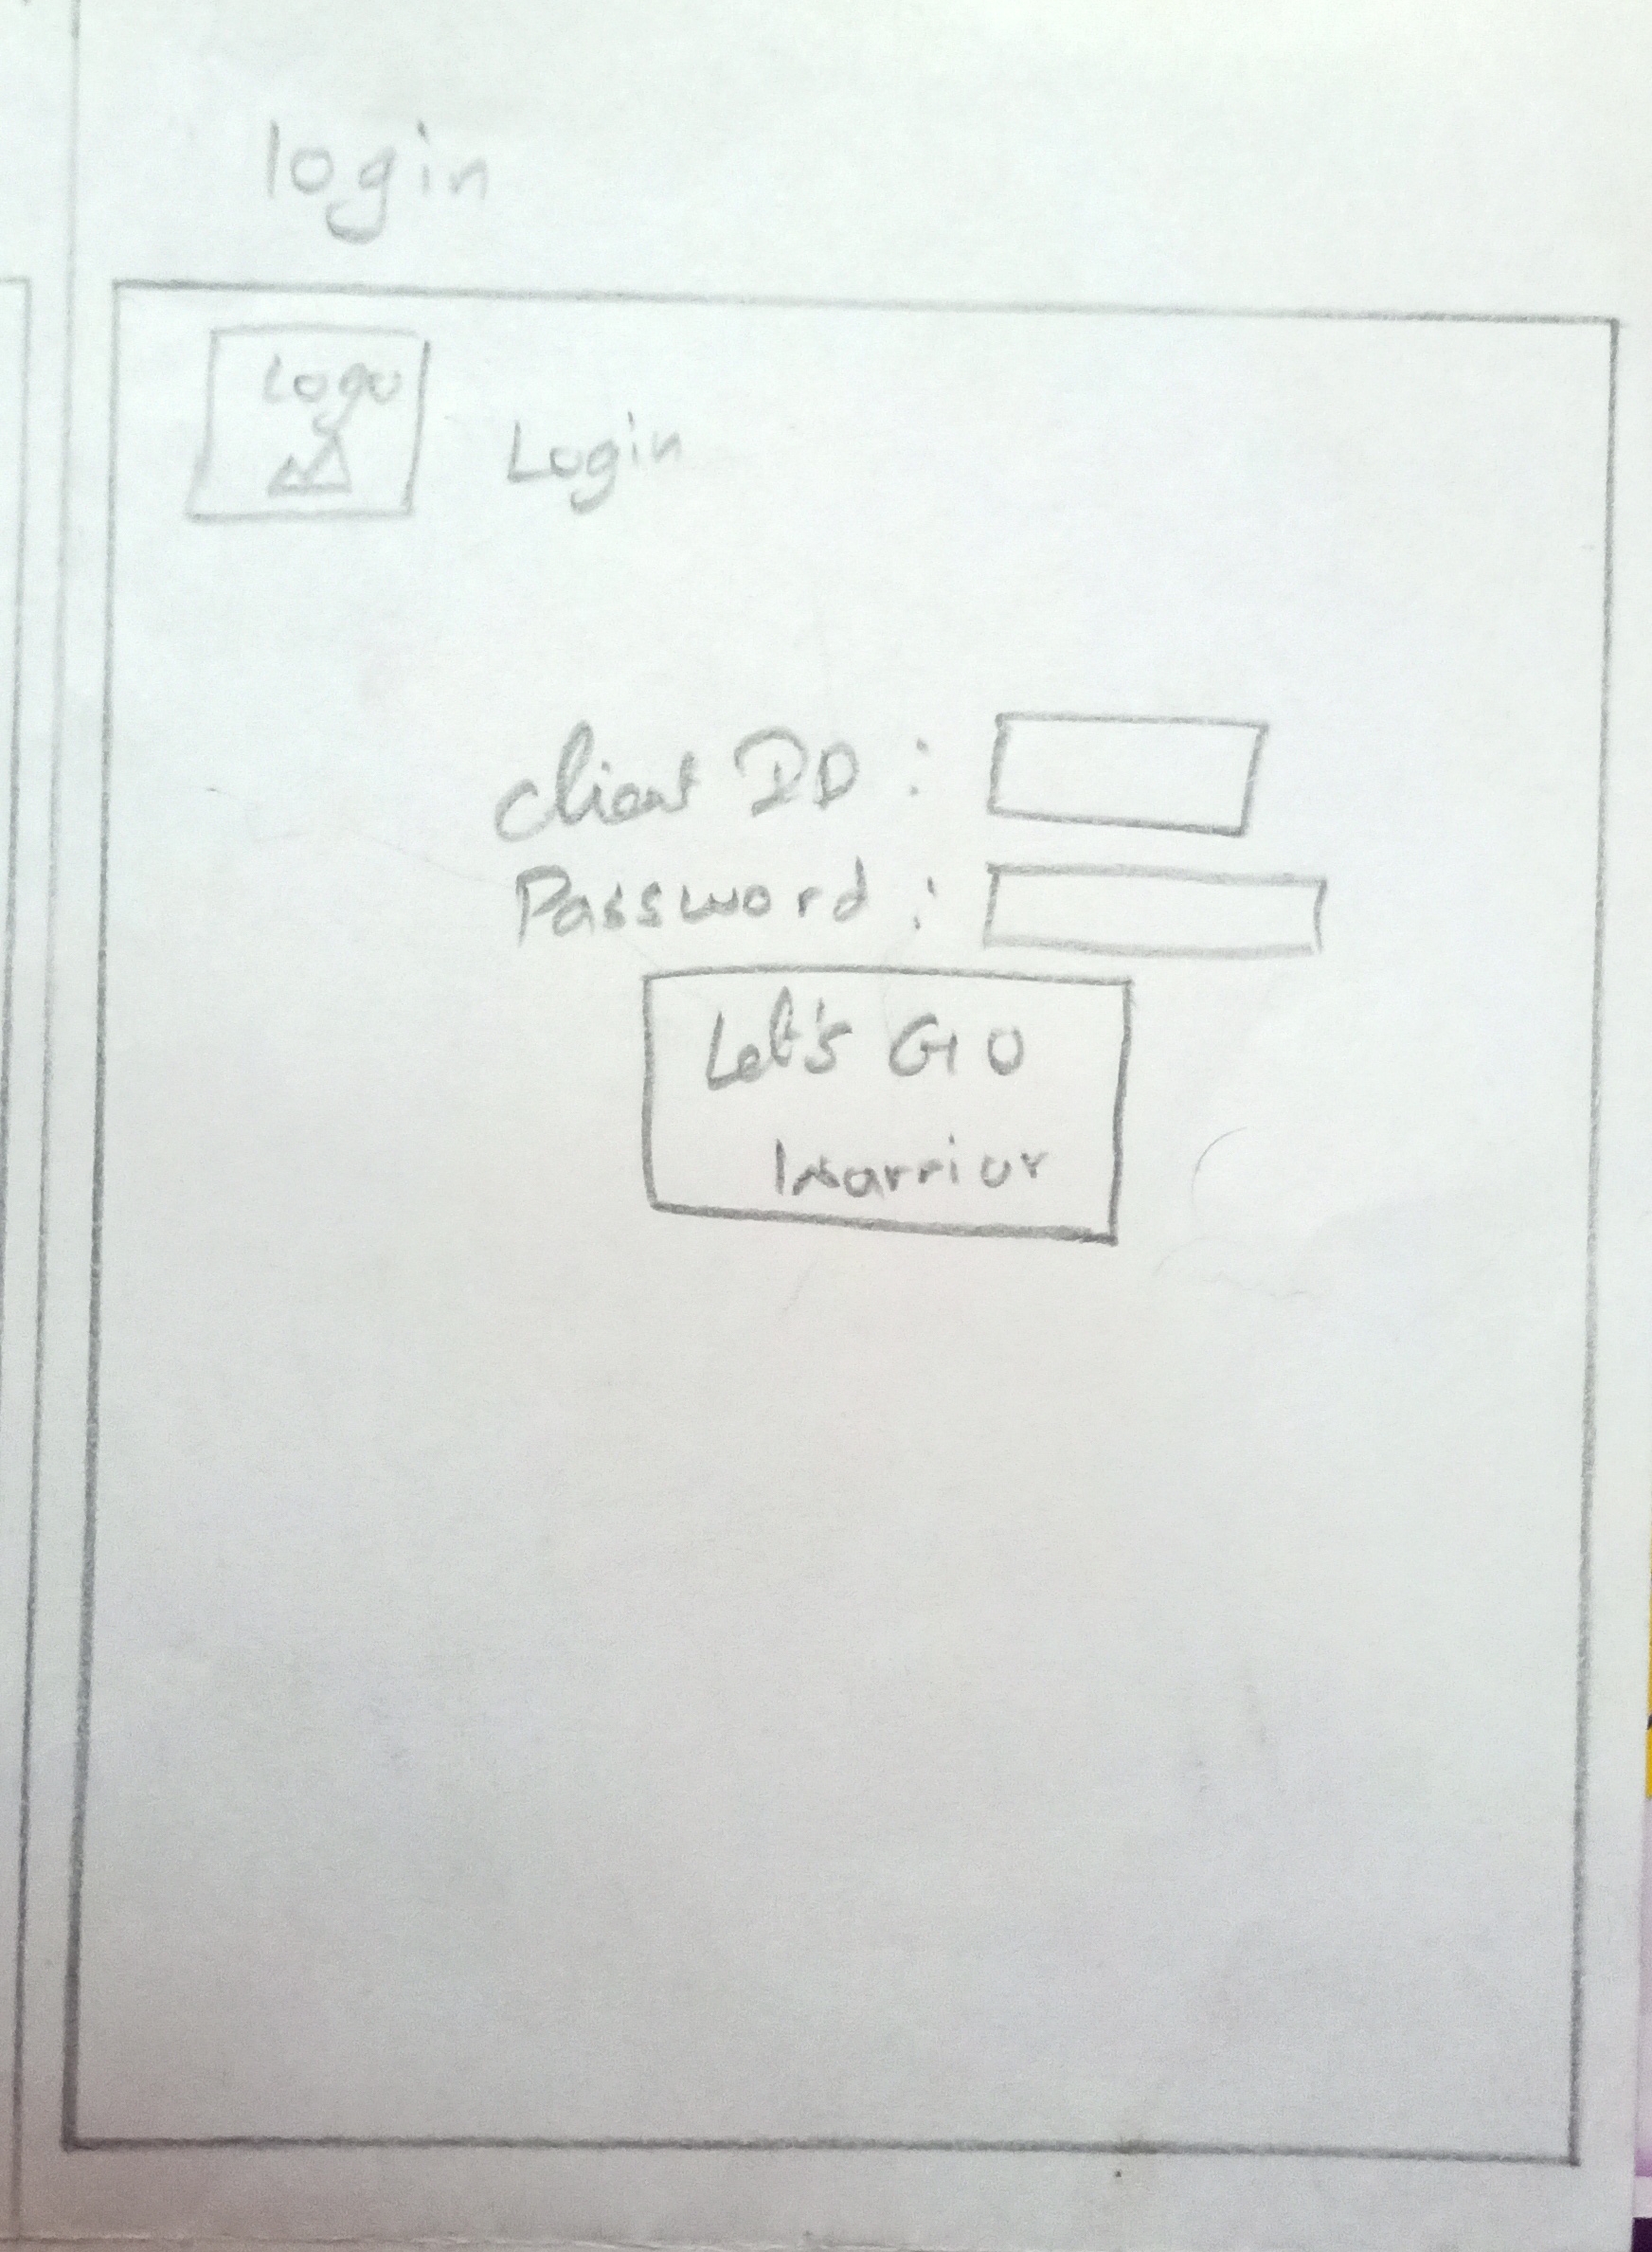 login
Logo
Login
Client ID :
Password :
Let's GO
Warrior